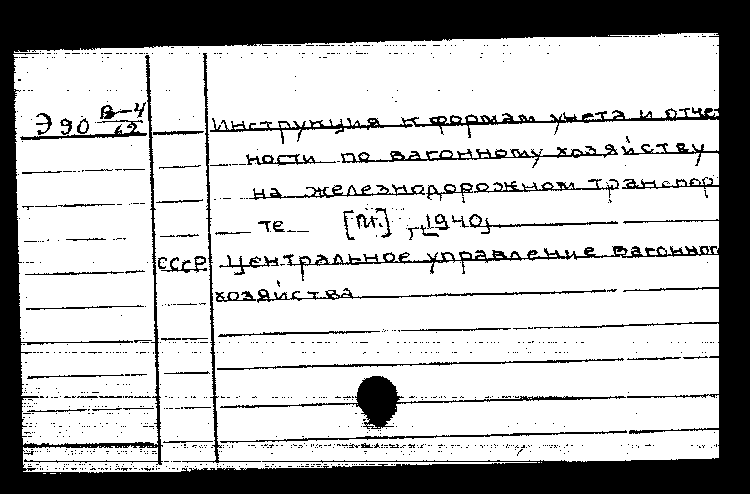 Э 90 В-4/62
Инструкция к формам учета и отчет
ности по вагонному хозяйству
на железнодорожном транспор
те [М.], 1940,
СССР Центральное управление вагонног
хозяйства